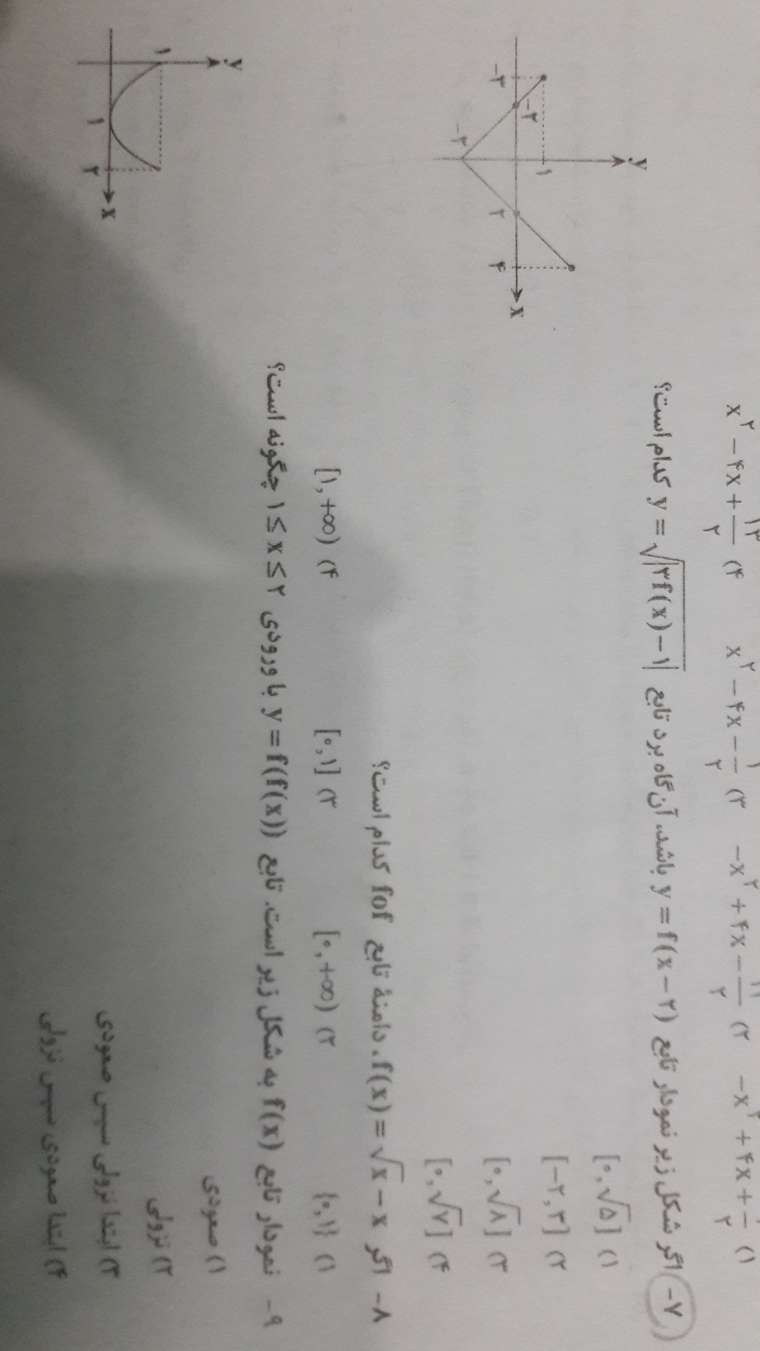 ۱) −x^۲ + ۴x + ۱/۲ ۲) −x^۲ + ۴x − ۱۱/۲ ۳) x^۲ − ۴x − ۱/۲ ۴) x^۲ − ۴x + ۱۳/۲
۷− اگر شکل زیر نمودار تابع y = f(x − ۲) باشد، آن‌گاه برد تابع y = √|۳f(x) − ۱| کدام است؟
۱) [۰, √۵]
۲) [−۲, ۳]
۳) [۰, √۸]
۴) [۰, √۷]
y
۱
−۳ −۲ ۲ ۴ x
−۲
۸− اگر f(x) = √x − x، دامنهٔ تابع fof کدام است؟
۱) {۰, ۱} ۲) [۰, +∞) ۳) [۰, ۱] ۴) [۱, +∞)
۹− نمودار تابع f(x) به شکل زیر است. تابع y = f(f(x)) با ورودی ۱ ≤ x ≤ ۲ چگونه است؟
۱) صعودی
۲) نزولی
۳) ابتدا نزولی سپس صعودی
۴) ابتدا صعودی سپس نزولی
y
۱
۱ ۲ x